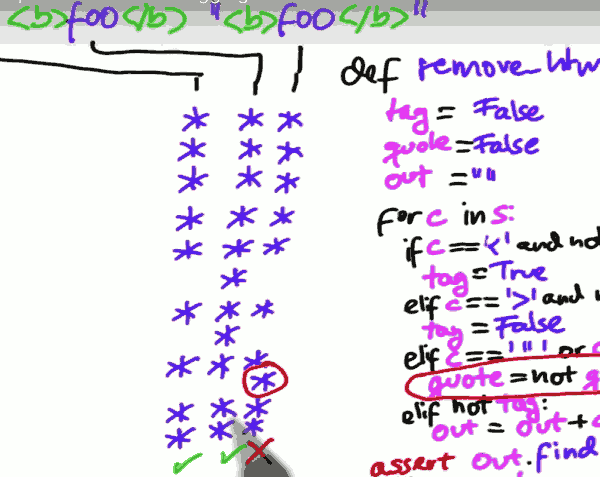 <b>foo</b> "<b>foo</b>"
def remove_
tag = False
quote = False
out = ""
for c in s:
if c == '<' and not
tag = True
elif c == '>' and
tag = False
elif c == '"' or
quote = not
elif not tag:
out = out +
assert out.find